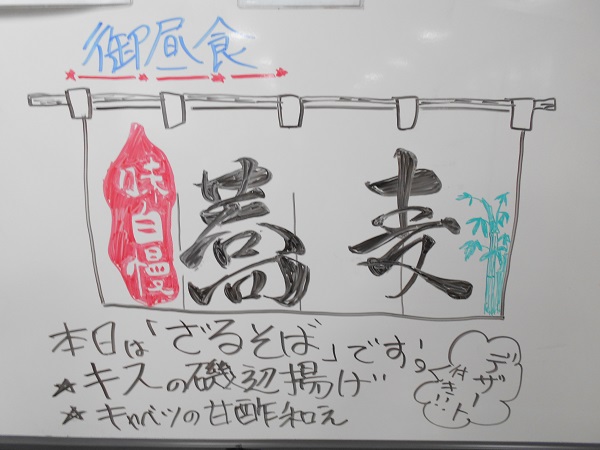 御昼食
味自慢
蕎麦
本日は「ざるそば」です。
★キスの磯辺揚げ
★キャベツの甘酢和え
デザート
付き!!